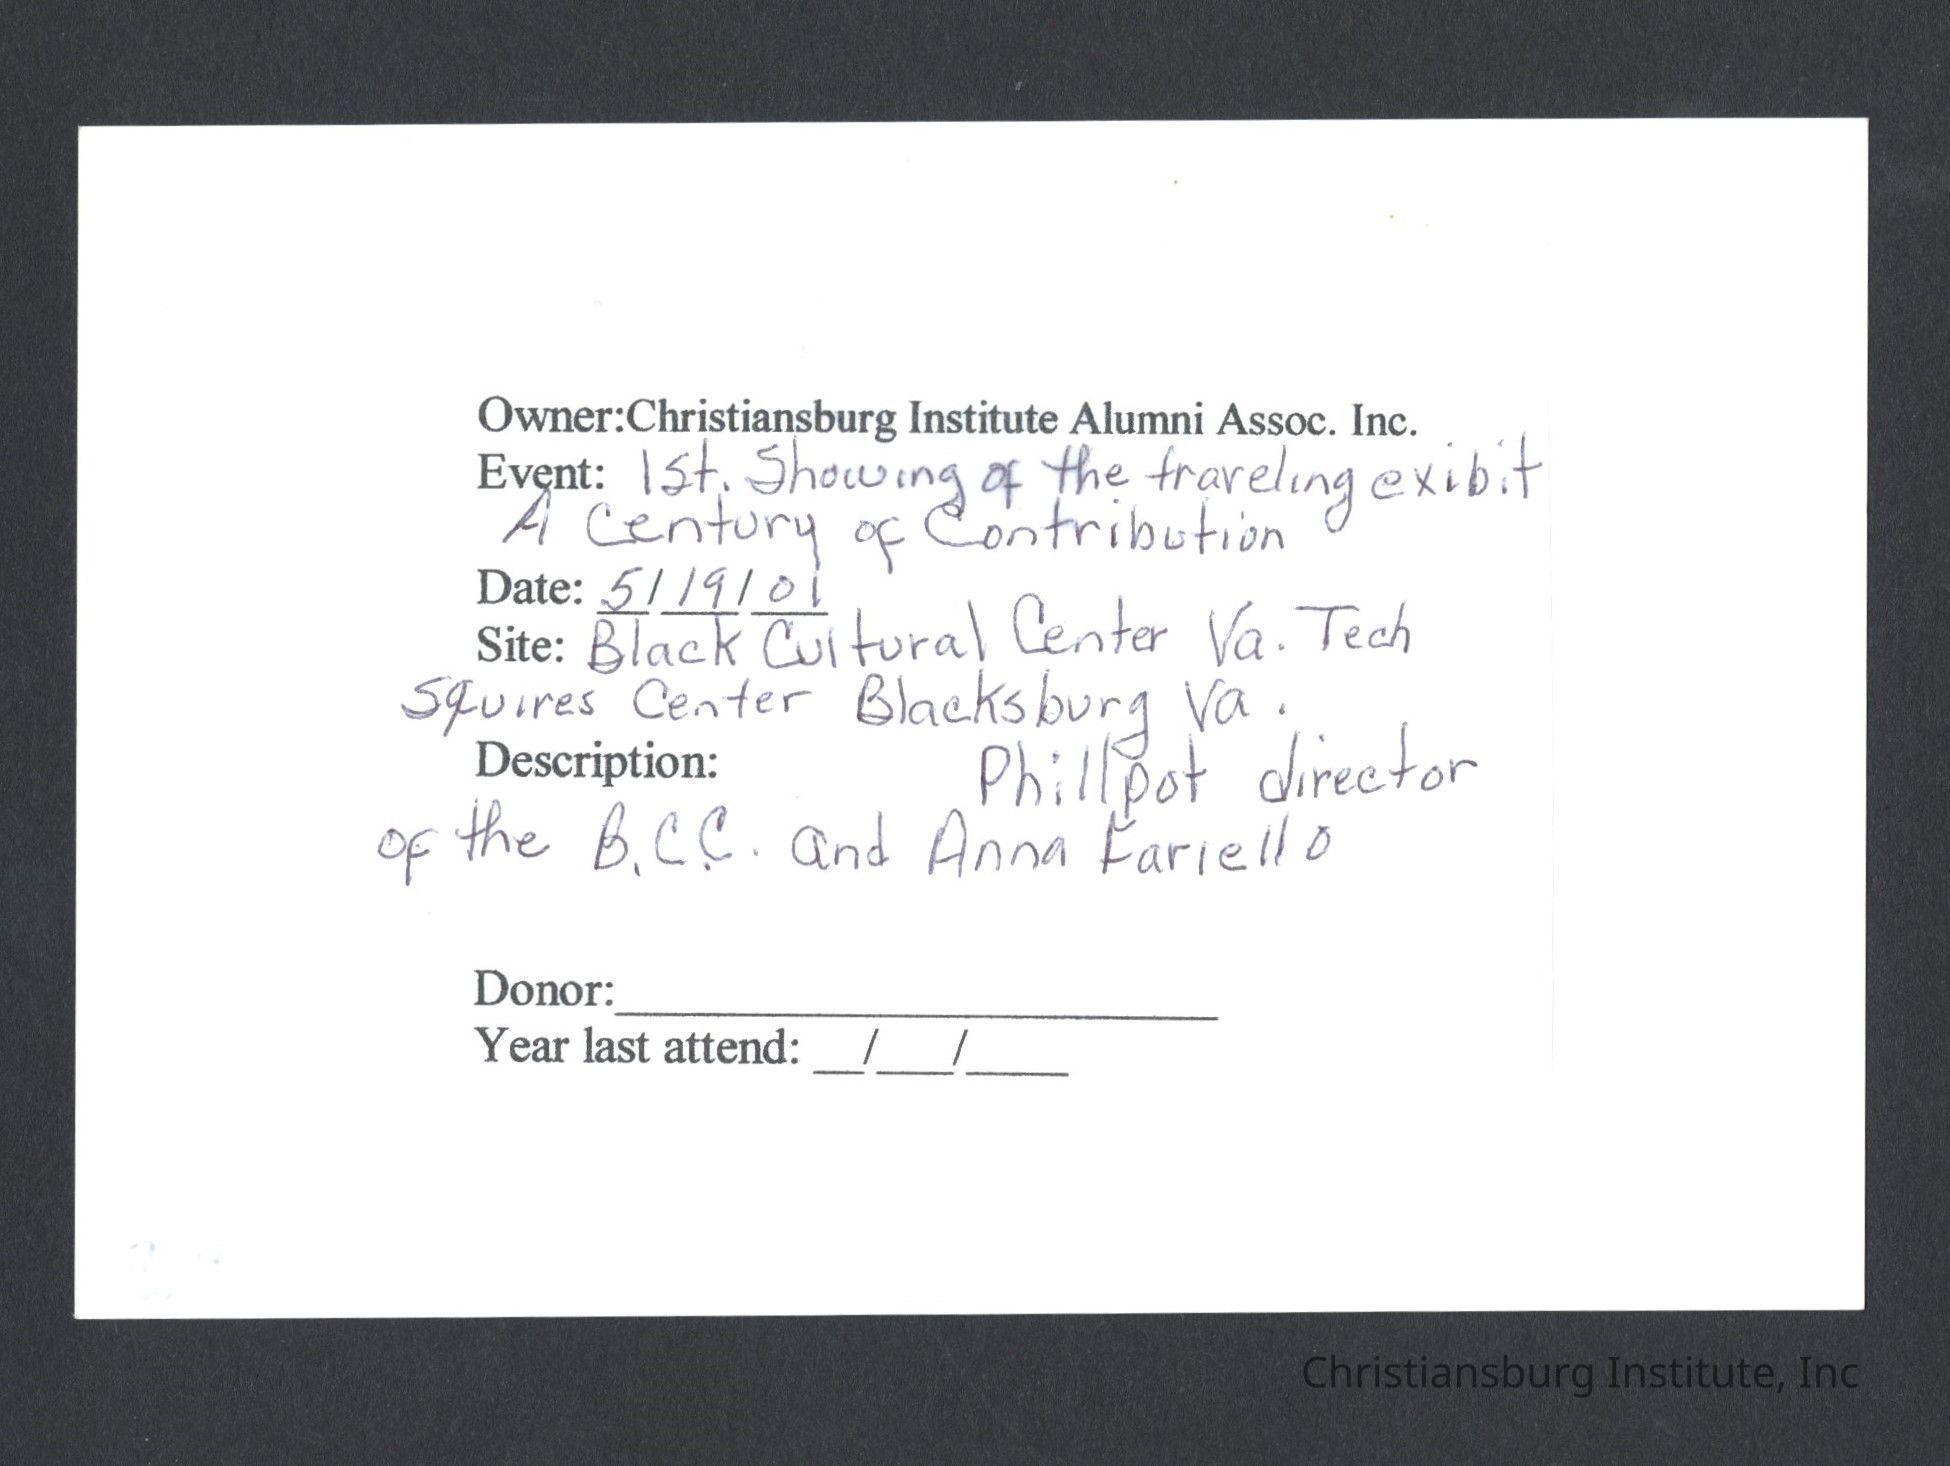 Owner:Christiansburg Institute Alumni Assoc. Inc.
Event: 1st. Showing of the traveling exibit
A Century of Contribution
Date: 5/19/01
Site: Black Cultural Center Va. Tech
Squires Center Blacksburg Va.
Description: Phillpot director
of the B.C.C. and Anna Fariello
Donor:
Year last attend: __/___/____
Christiansburg Institute, Inc